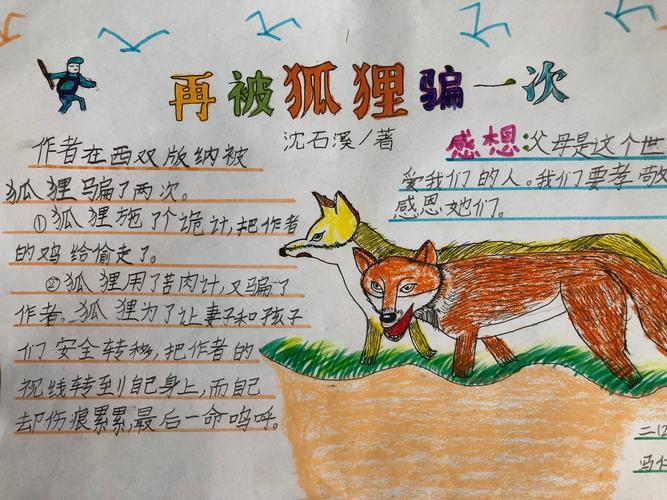 再被狐狸骗一次
沈石溪/著
作者在西双版纳被
狐狸骗了两次。
①狐狸施了个诡计,把作者
的鸡给偷走了。
②狐狸用了苦肉计,又骗了
作者。狐狸为了让妻子和孩子
们安全转移,把作者的
视线转到自己身上,而自己
却伤痕累累,最后一命呜呼。
感想:父母是这个世
爱我们的人。我们要孝敬
感恩她们。
二(2
冯